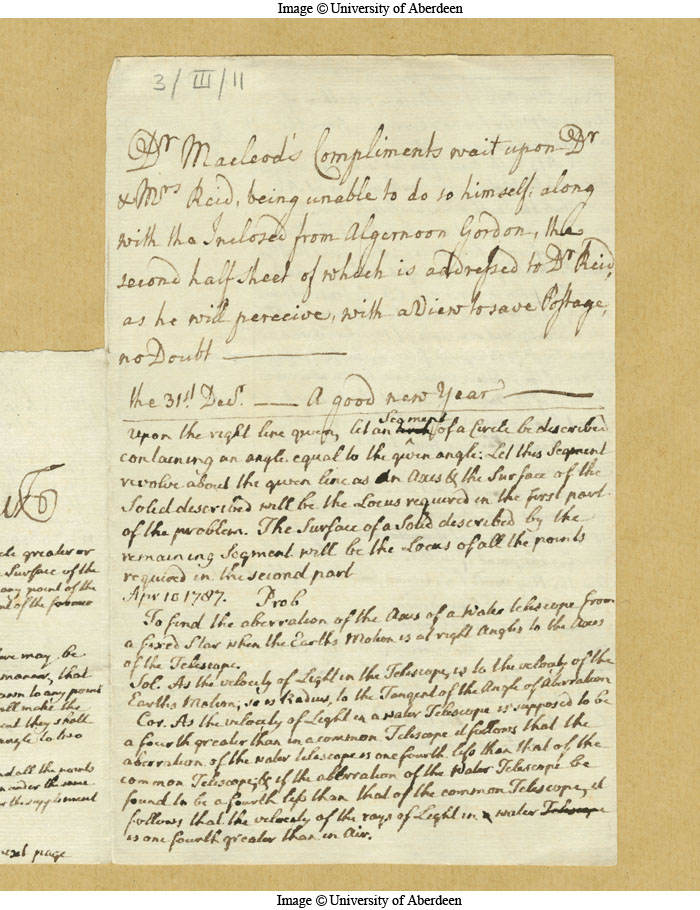 Image © University of Aberdeen
3/III/11
Dr Macleod's Compliments wait upon Dr
& Mrs Reid, being unable to do so himself: along
with the Inclosed from Algernoon Gordon, the
second half sheet of which is addressed to Dr Reid,
as he will perceive, with a View to save Postage,
no Doubt
the 31st Decr. A good new Year
Upon the right line given, let an Segment of a Circle be described
containing an angle equal to the given angle: Let this Segment
revolve about the given line as an Axis & the Surface of the
Solid described will be the Locus required in the first part
of the problem. The Surface of a Solid described by the
remaining Segment will be the Locus of all the points
required in the second part
Apr 10 1787. Prob
To find the aberration of the Axis of a Water telescope from
a fixed Star when the Earths Motion is at right Angles to the Axis
of the Telescope.
Sol. As the velocity of Light in the Telescope, is to the velocity of the
Earths Motion; so is Radius, to the Tangent of the Angle of Aberration
Cor. As the velocity of Light in a water Telescope is supposed to be
a fourth greater than in a common Telescope it follows that the
aberration of the water telescope is one fourth less than that of the
common Telescope; & if the abberration of the Water Telescope be
found to be a fourth less than that of the common Telescope, it
follows that the velocity of the rays of Light in water Telescope
is one fourth greater than in Air.
cle greater or
Surface of the
any point of the
nt of the former
ve may be
manner, that
awn to any point
ill make the
ent they shall
angle to two
nd all the points
n under the same
or the supplement
next page
Image © University of Aberdeen